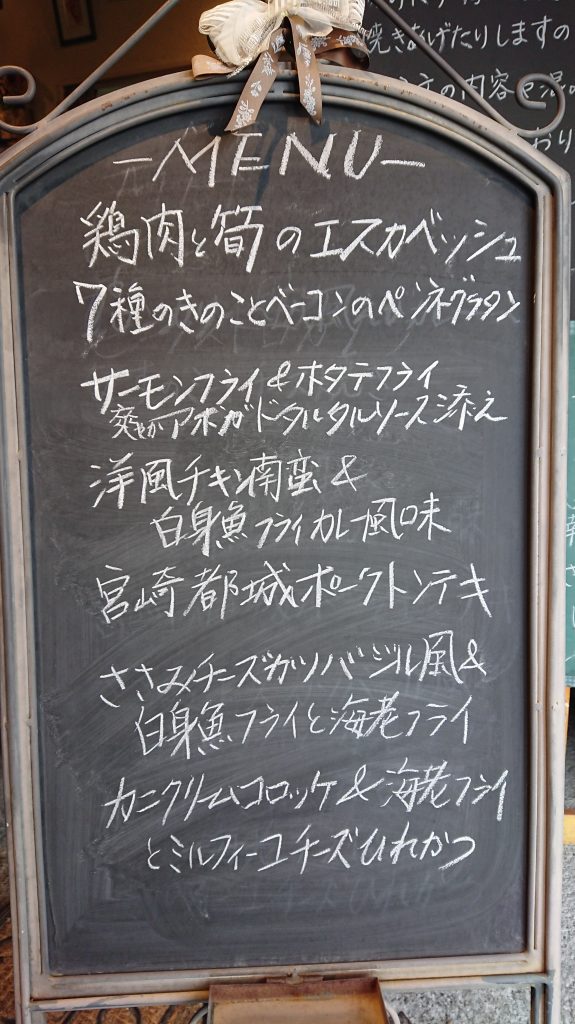 -MENU-
鶏肉と筍のエスカベッシュ
7種のきのことベーコンのペンネグラタン
サーモンフライ&ホタテフライ
爽やかアボガドタルタルソース添え
洋風チキン南蛮&
白身魚フライカレー風味
宮崎都城ポークトンテキ
ささみチーズカツバジル風&
白身魚フライと海老フライ
カニクリームコロッケ&海老フライ
とミルフィーユチーズひれかつ
焼きあげたりしますの
の内容や混